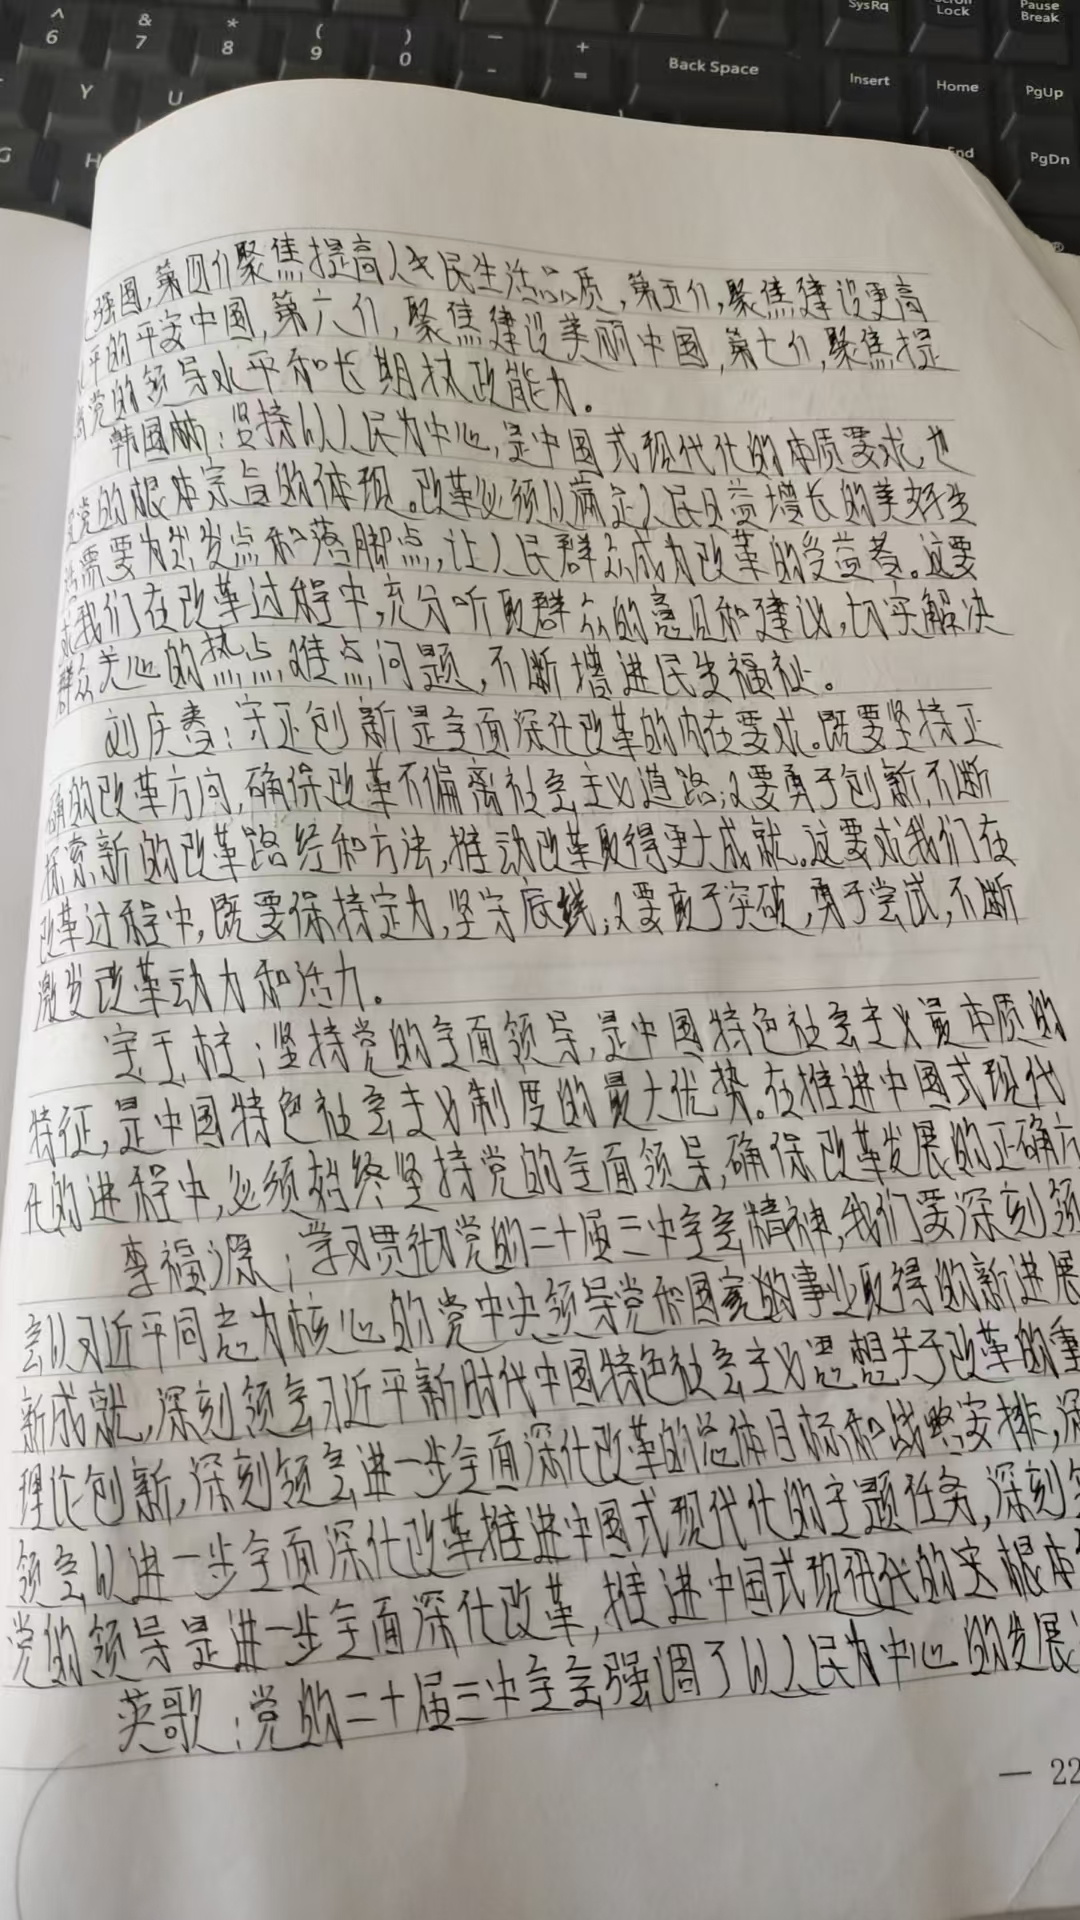 ^ 6 & 7 * 8 ( 9 ) 0 _ - + = Back Space SysRq Scroll Lock Pause Break
Y U Insert Home PgUp
G H End PgDn
强国,第四个聚焦提高人民生活品质,第五个,聚焦建设更高
水平的平安中国,第六个,聚焦建设美丽中国,第七个,聚焦提
高党的领导水平和长期执政能力。
韩国林:坚持以人民为中心,是中国式现代化的本质要求,也
是党的根本宗旨的体现。改革必须以满足人民日益增长的美好生
活需要为出发点和落脚点,让人民群众成为改革的受益者。这要
求我们在改革过程中,充分听取群众的意见和建议,切实解决
群众关心的热点,难点问题,不断增进民生福祉。
刘庆春:守正创新是全面深化改革的内在要求。既要坚持正
确的改革方向,确保改革不偏离社会主义道路;又要勇于创新,不断
探索新的改革路径和方法,推动改革取得更大成就。这要求我们在
改革过程中,既要保持定力,坚守底线;又要敢于突破,勇于尝试,不断
激发改革动力和活力。
宝玉柱:坚持党的全面领导,是中国特色社会主义最本质的
特征,是中国特色社会主义制度的最大优势。在推进中国式现代
化的进程中,必须始终坚持党的全面领导,确保改革发展的正确方
李福源:学习贯彻党的二十届三中全会精神,我们要深刻领
会以习近平同志为核心的党中央领导党和国家的事业取得的新进展
新成就,深刻领会习近平新时代中国特色社会主义思想关于改革的重
理论创新,深刻领会进一步全面深化改革的总体目标和战略安排,深
领会以进一步全面深化改革推进中国式现代化的主题任务,深刻领
党的领导是进一步全面深化改革,推进中国式现代的根本
英歌:党的二十届三中全会强调了以人民为中心的发展
— 22